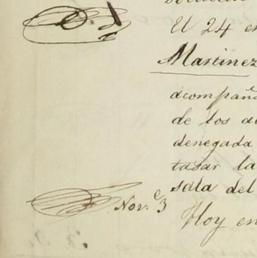 El 24 en
Martinez
acompaña
de los
denegada
tasar la
sala del
Nov.e 3
Hoy en